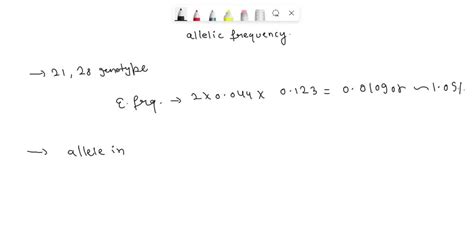 allelic frequency.
→ 21, 28 genotype
E. frq. → 2 x 0.044 x 0.123 = 0.010908 ~ 1.09%
→ allele in